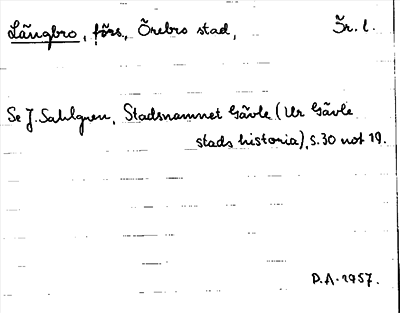 Längbro, förs., Örebro stad, Är. l.
Se J. Sahlgren, Stadsnamnet Gävle (Ur Gävle
stads historia), s. 30 not 19.
D.A. 1957.